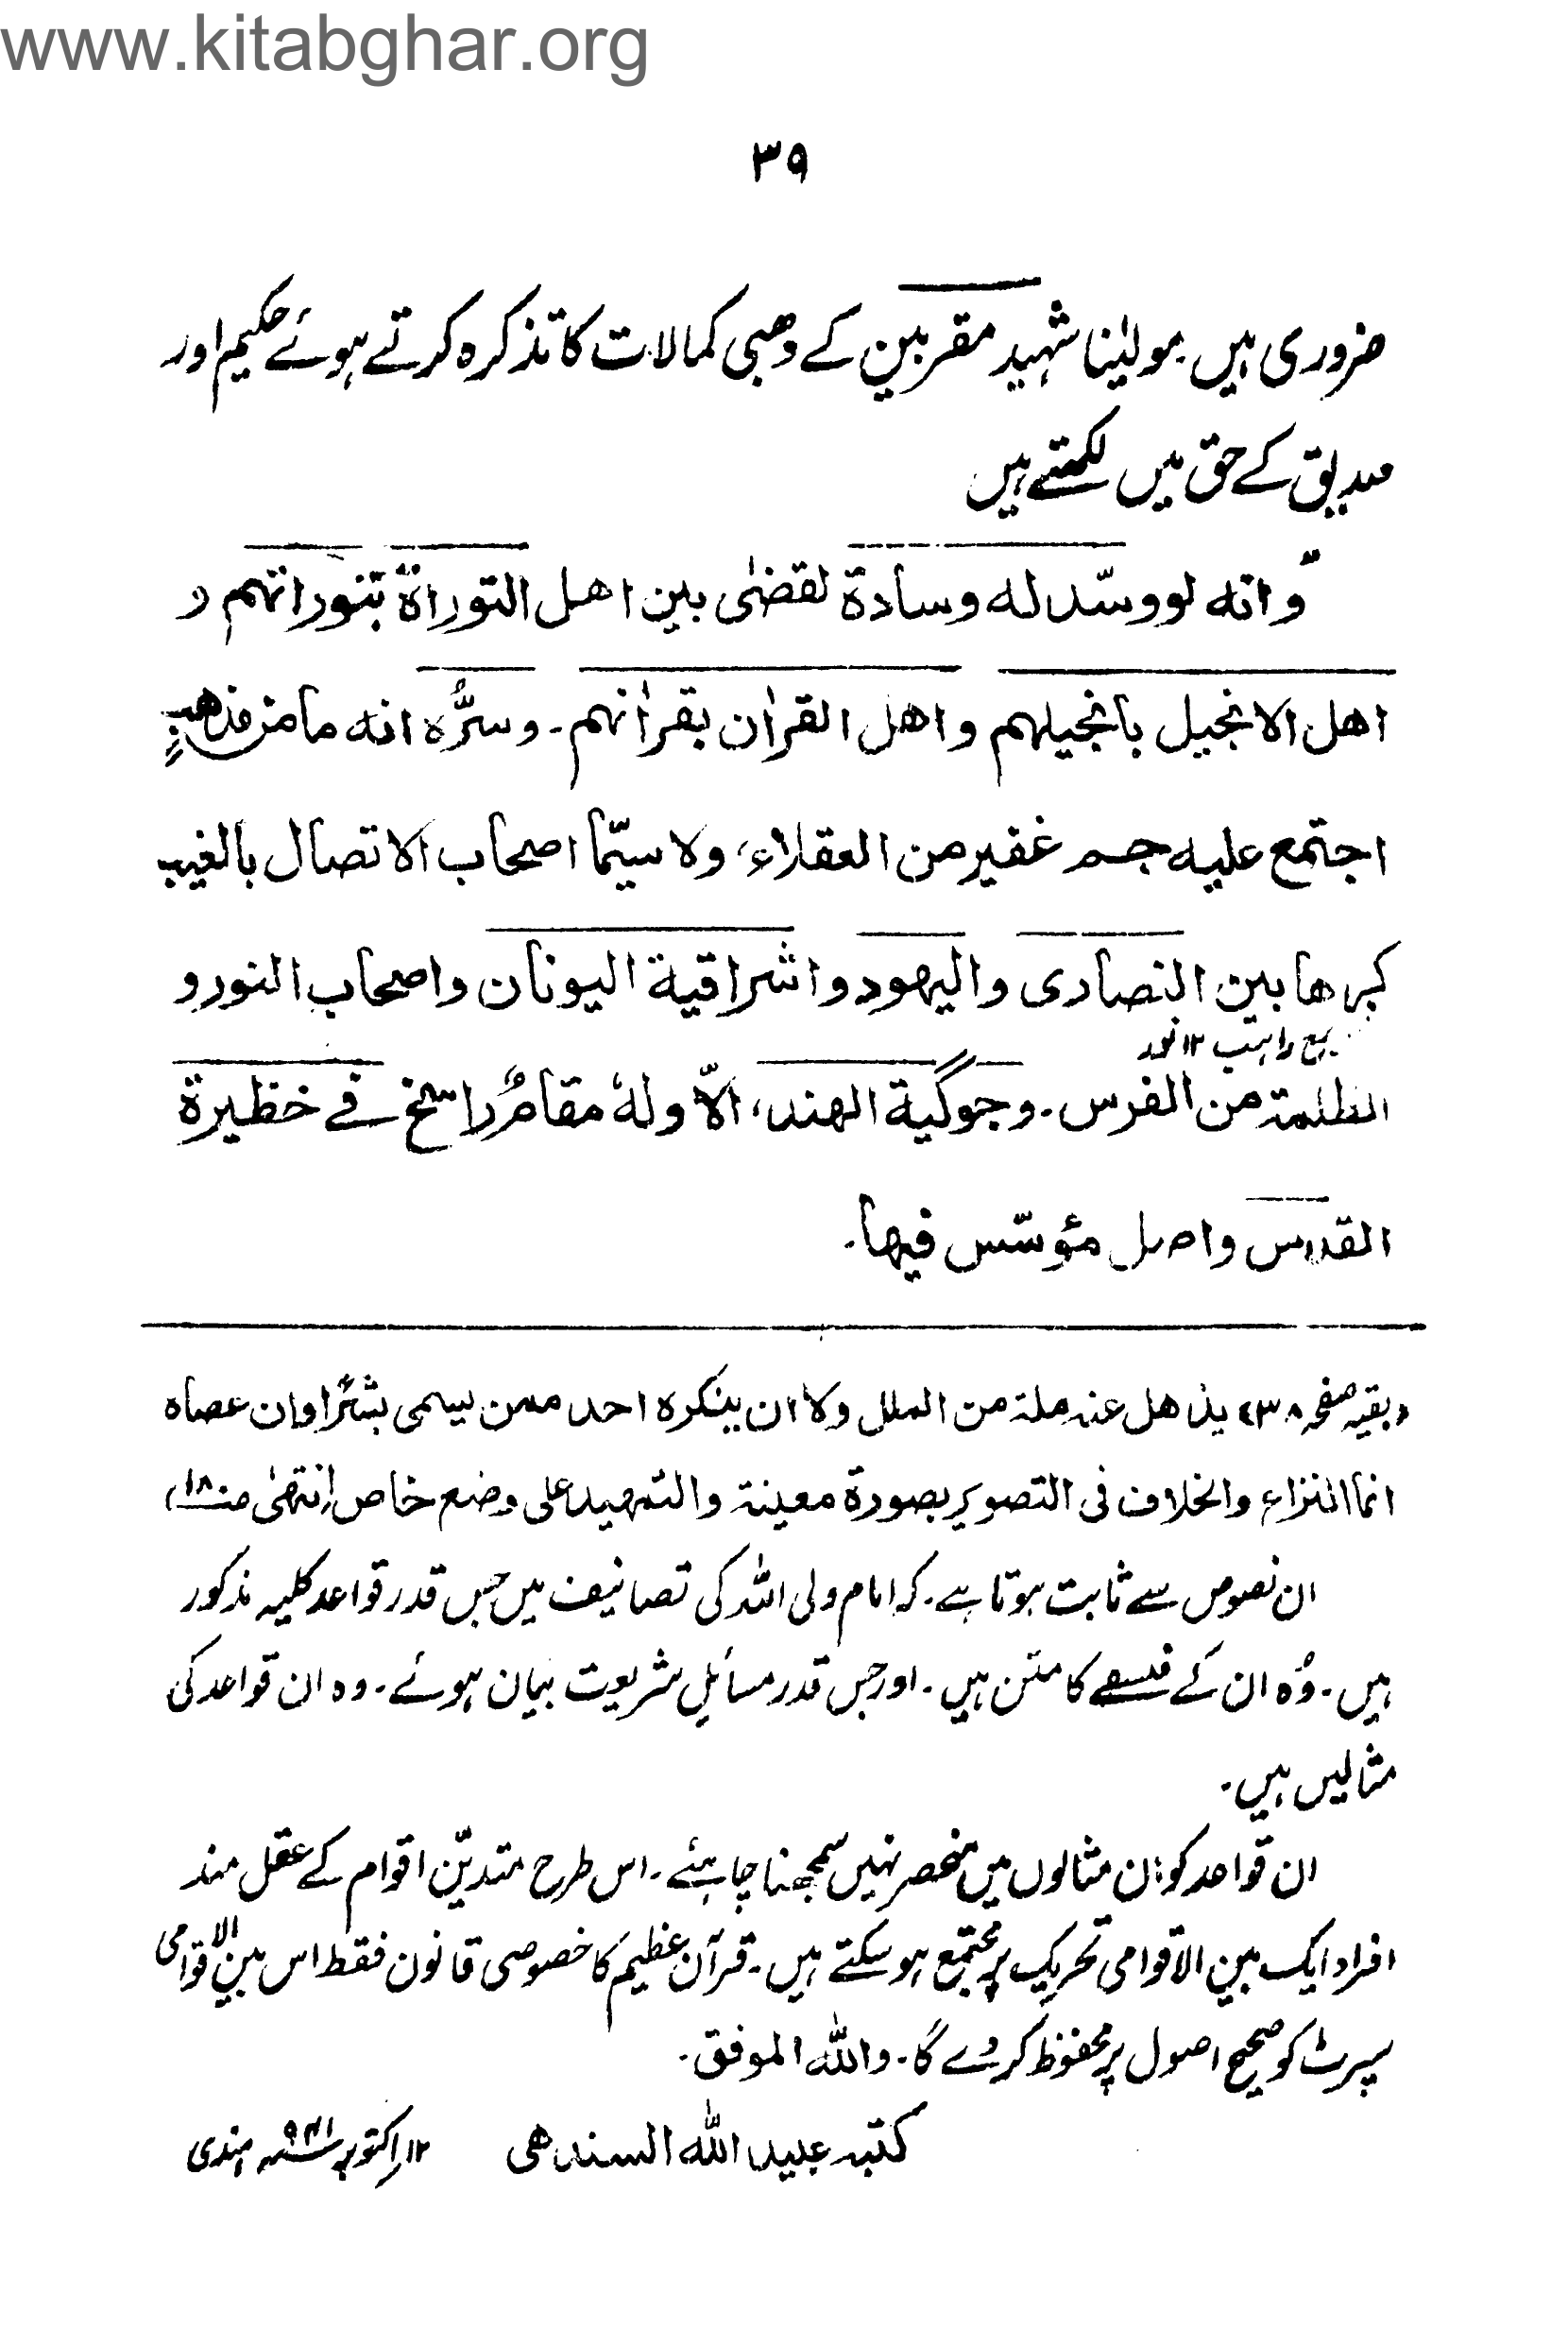 www.kitabghar.org
۳۹
ضروری ہیں۔ مولیٰنا شہید مقربین کے وھبی کمالات کا تذکرہ کرتے ہوئے حکیم اور
صدیق کے حق میں لکھتے ہیں
"وانه لووسّد له وسادة لقضٰی بین اهل التوراة بتوراتهم و
اهل الانجیل بانجیلهم واهل القراٰن بقراٰنهم۔ وسرُّه انه مامن مذهبٍ
اجتمع علیه جم غفیر من العقلاء، ولا سیّما اصحاب الاتصال بالغیب
کبرها بین النصاری والیهود واشراقیة الیونان واصحاب النور و
الظلمة من الفرس۔ وجوگیة الهند، الاّ ولهٗ مقامٌ راسخ فی خظیرة
القدس واصل مؤسّس فیها۔
(بقیہ صفحہ ۳۸) یذهل عنه ملة من الملل ولا ان ینکره احد ممن یسمی بشرًا وان عصاه
انما النزاع والخلاف فی التصویر بصورة معینة والتمهید علی وضع خاص اِنتهیٰ صـ۱۸)
ان نصوص سے ثابت ہوتا ہے۔ کہ امام ولی اللہ کی تصانیف میں جس قدر قواعد کلیہ مذکور
ہیں۔ وُہ ان کے فلسفے کا متن ہیں۔ اور جس قدر مسائلِ شریعت بیان ہوئے۔ وہ ان قواعد کی
مثالیں ہیں۔
ان قواعد کو ان مثالوں میں منحصر نہیں سمجھنا چاہئے۔ اس طرح متدیّن اقوام کے عقل مند
افراد ایک بین الاقوامی تحریک پر مجتمع ہو سکتے ہیں۔ قرآن عظیم کا خصوصی قانون فقط اس بین الاقوامی
سپرٹ کو صحیح اصول پر محفوظ کر دے گا۔ واللہ الموفق۔
کتبہ عبید اللہ السندھی ۱۲/اکتوبر ۹۴۱ء ہندی